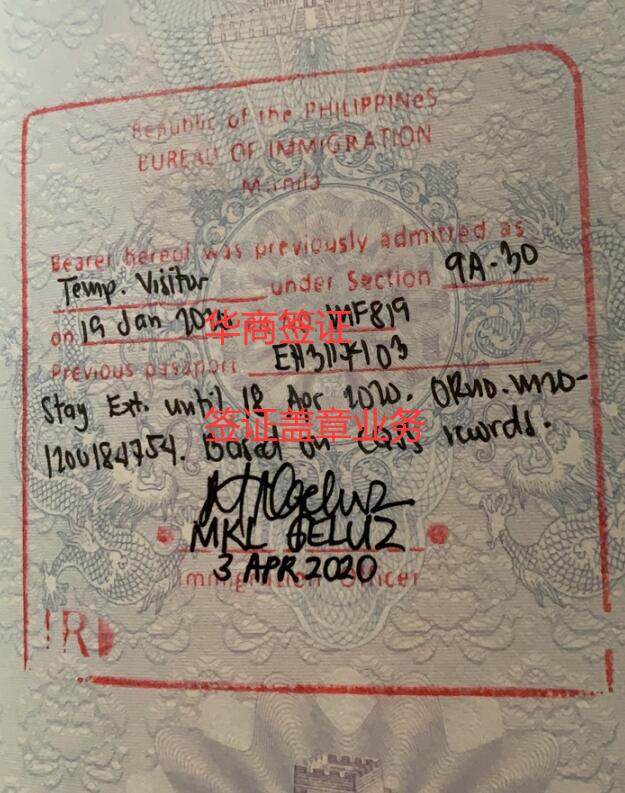 Republic of the PHILIPPINES
BUREAU OF IMMIGRATION
Manila
Bearer hereof was previously admitted as
Temp. Visitor under Section 9A-30
on 19 Jan 华商签证 MF819
Previous passport
Stay Ext. until 18 Apr 2020. ORno.
签证盖章业务
Based on records.
MKL GELUZ
3 APR 2020
Immigration Officer